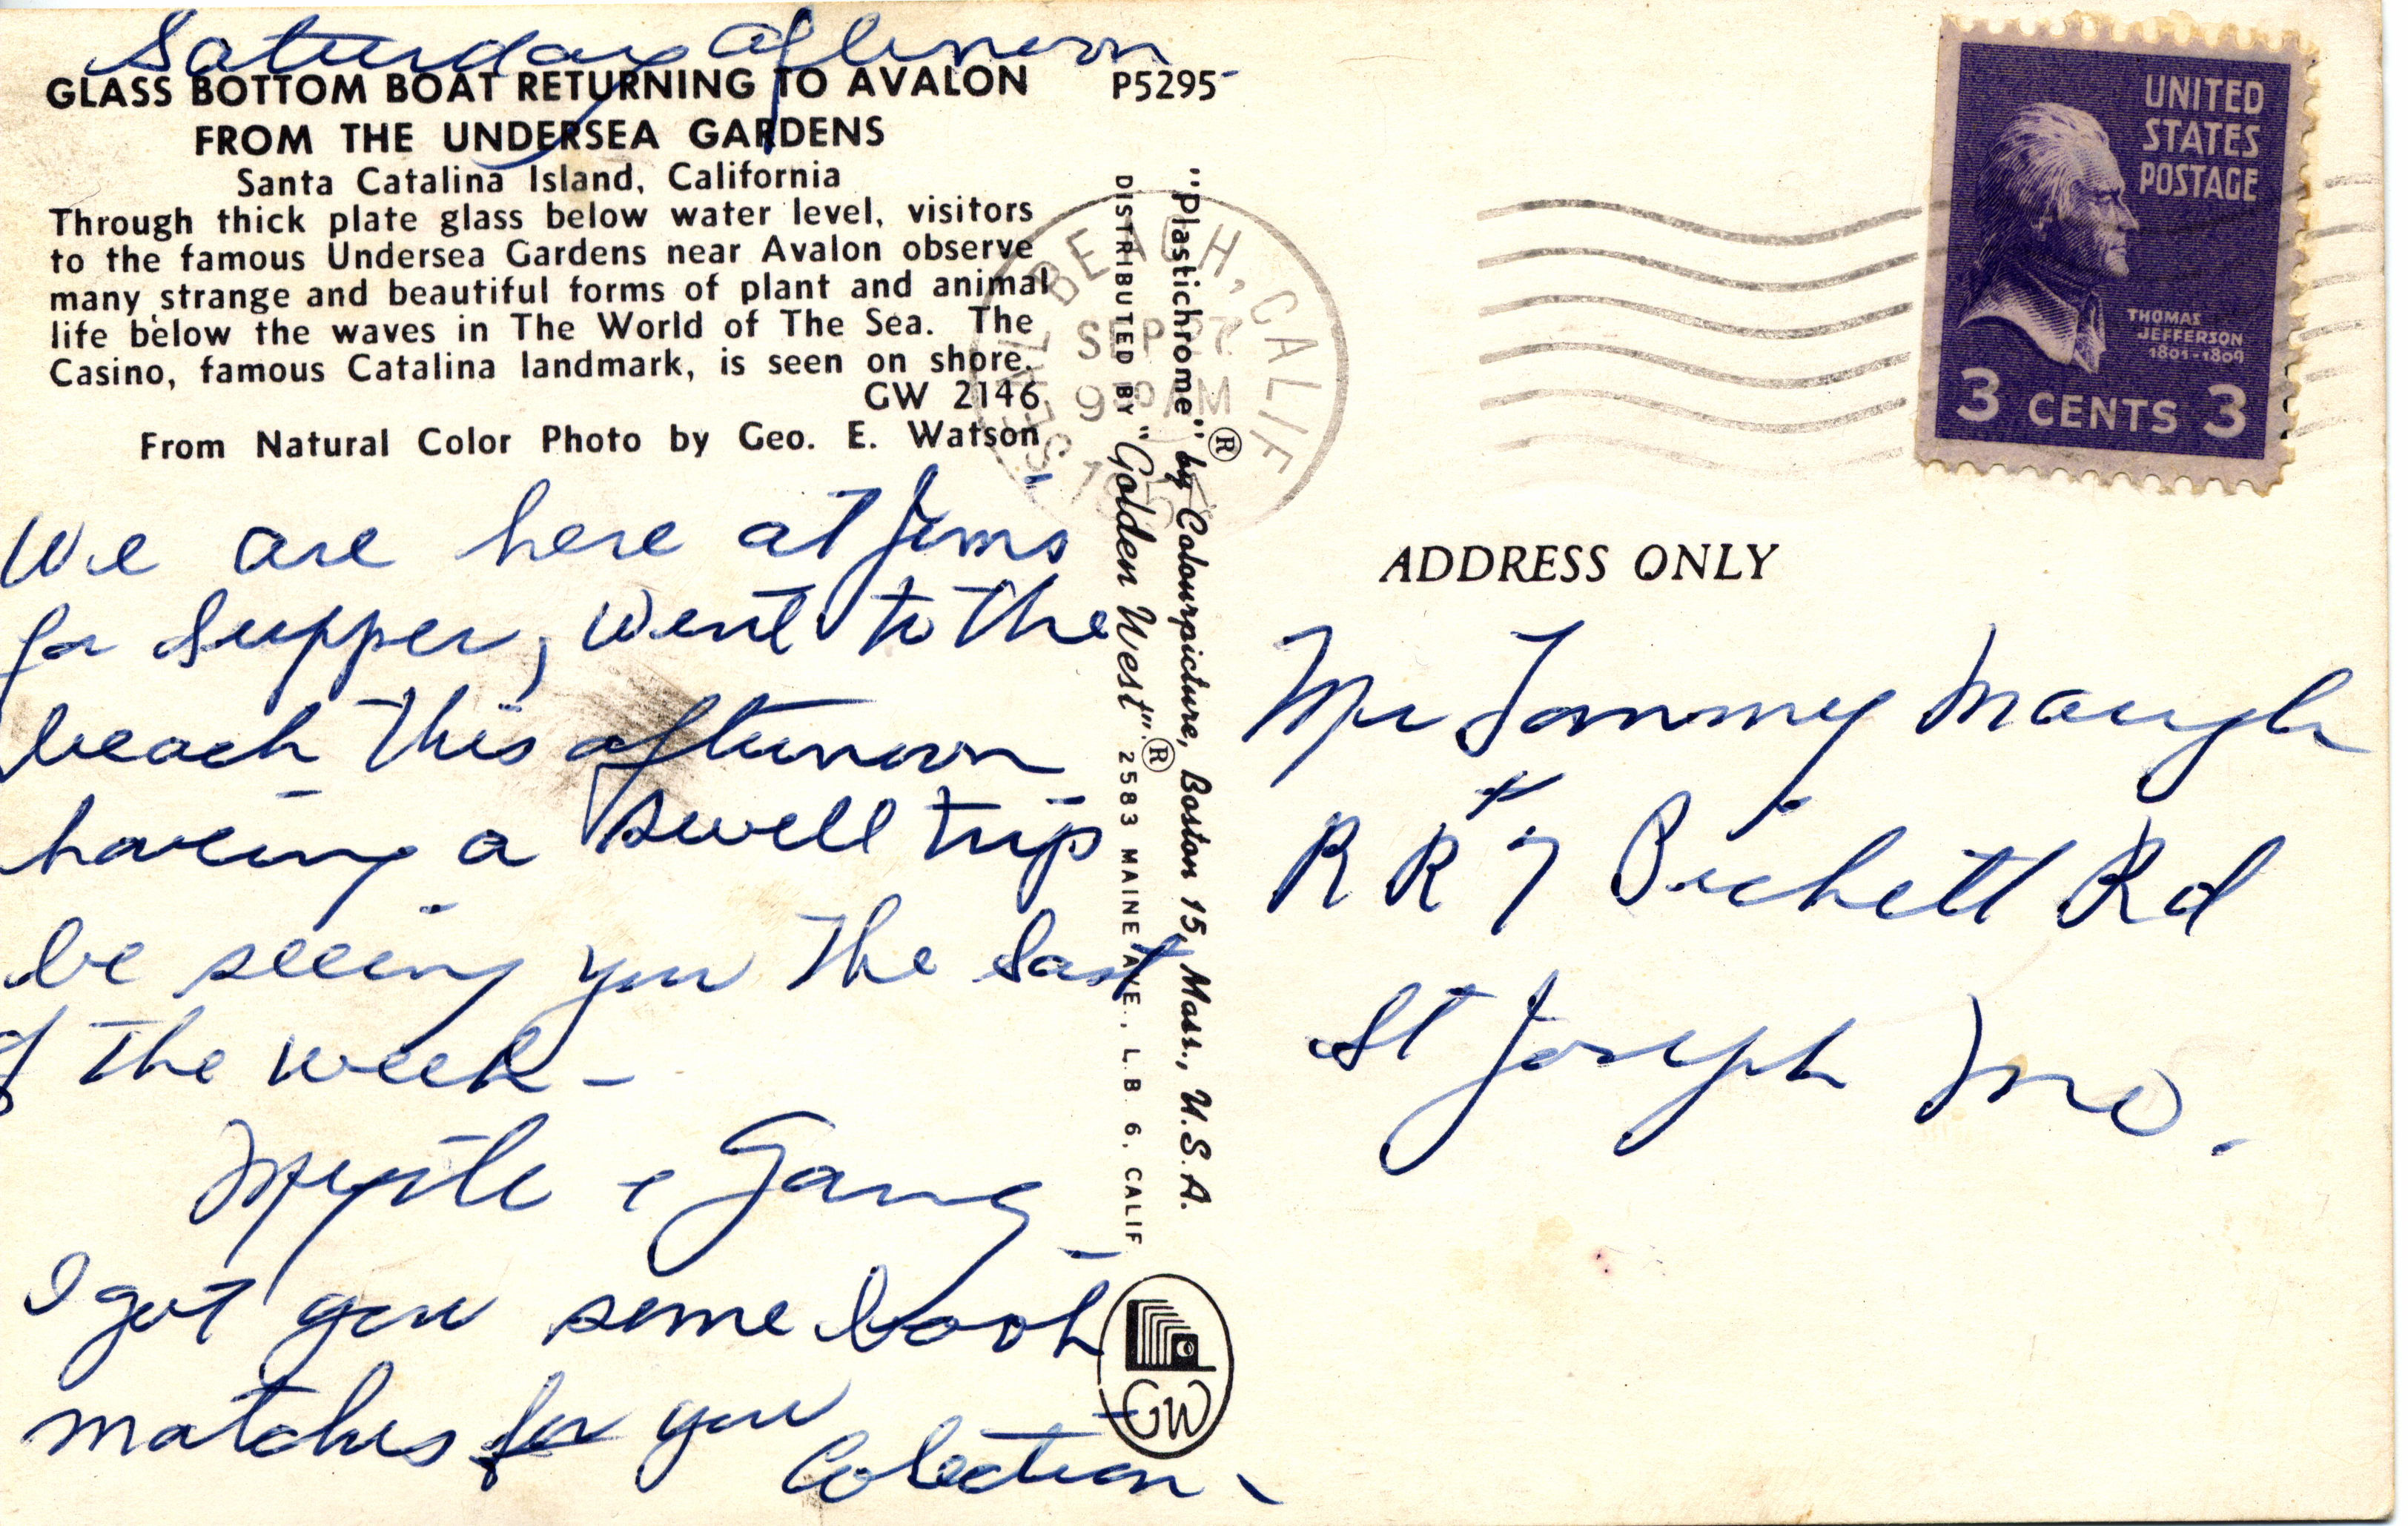 Saturday afternoon
GLASS BOTTOM BOAT RETURNING TO AVALON
FROM THE UNDERSEA GARDENS
P5295
Santa Catalina Island, California
Through thick plate glass below water level, visitors
to the famous Undersea Gardens near Avalon observe
many strange and beautiful forms of plant and animal
life below the waves in The World of The Sea. The
Casino, famous Catalina landmark, is seen on shore.
GW 2146
From Natural Color Photo by Geo. E. Watson
We are here at Jims
for supper, went to the
beach this afternoon
having a swell trip
be seeing you the last
of the week –
Myrtle & Gang
I got you some book
matches for you
Colection –
DISTRIBUTED BY "Golden West".® 2583 MAINE AVE., L.B 6, CALIF
"Plastichrome"® by Colourpicture, Boston 15, Mass., U.S.A.
GW
SEAL BEACH, CALIF
SEP 27
AM
UNITED
STATES
POSTAGE
THOMAS
JEFFERSON
1801-1809
3 CENTS 3
ADDRESS ONLY
Mr Tommy Maugh
RR #7 Pickett Rd
St Joseph Mo.